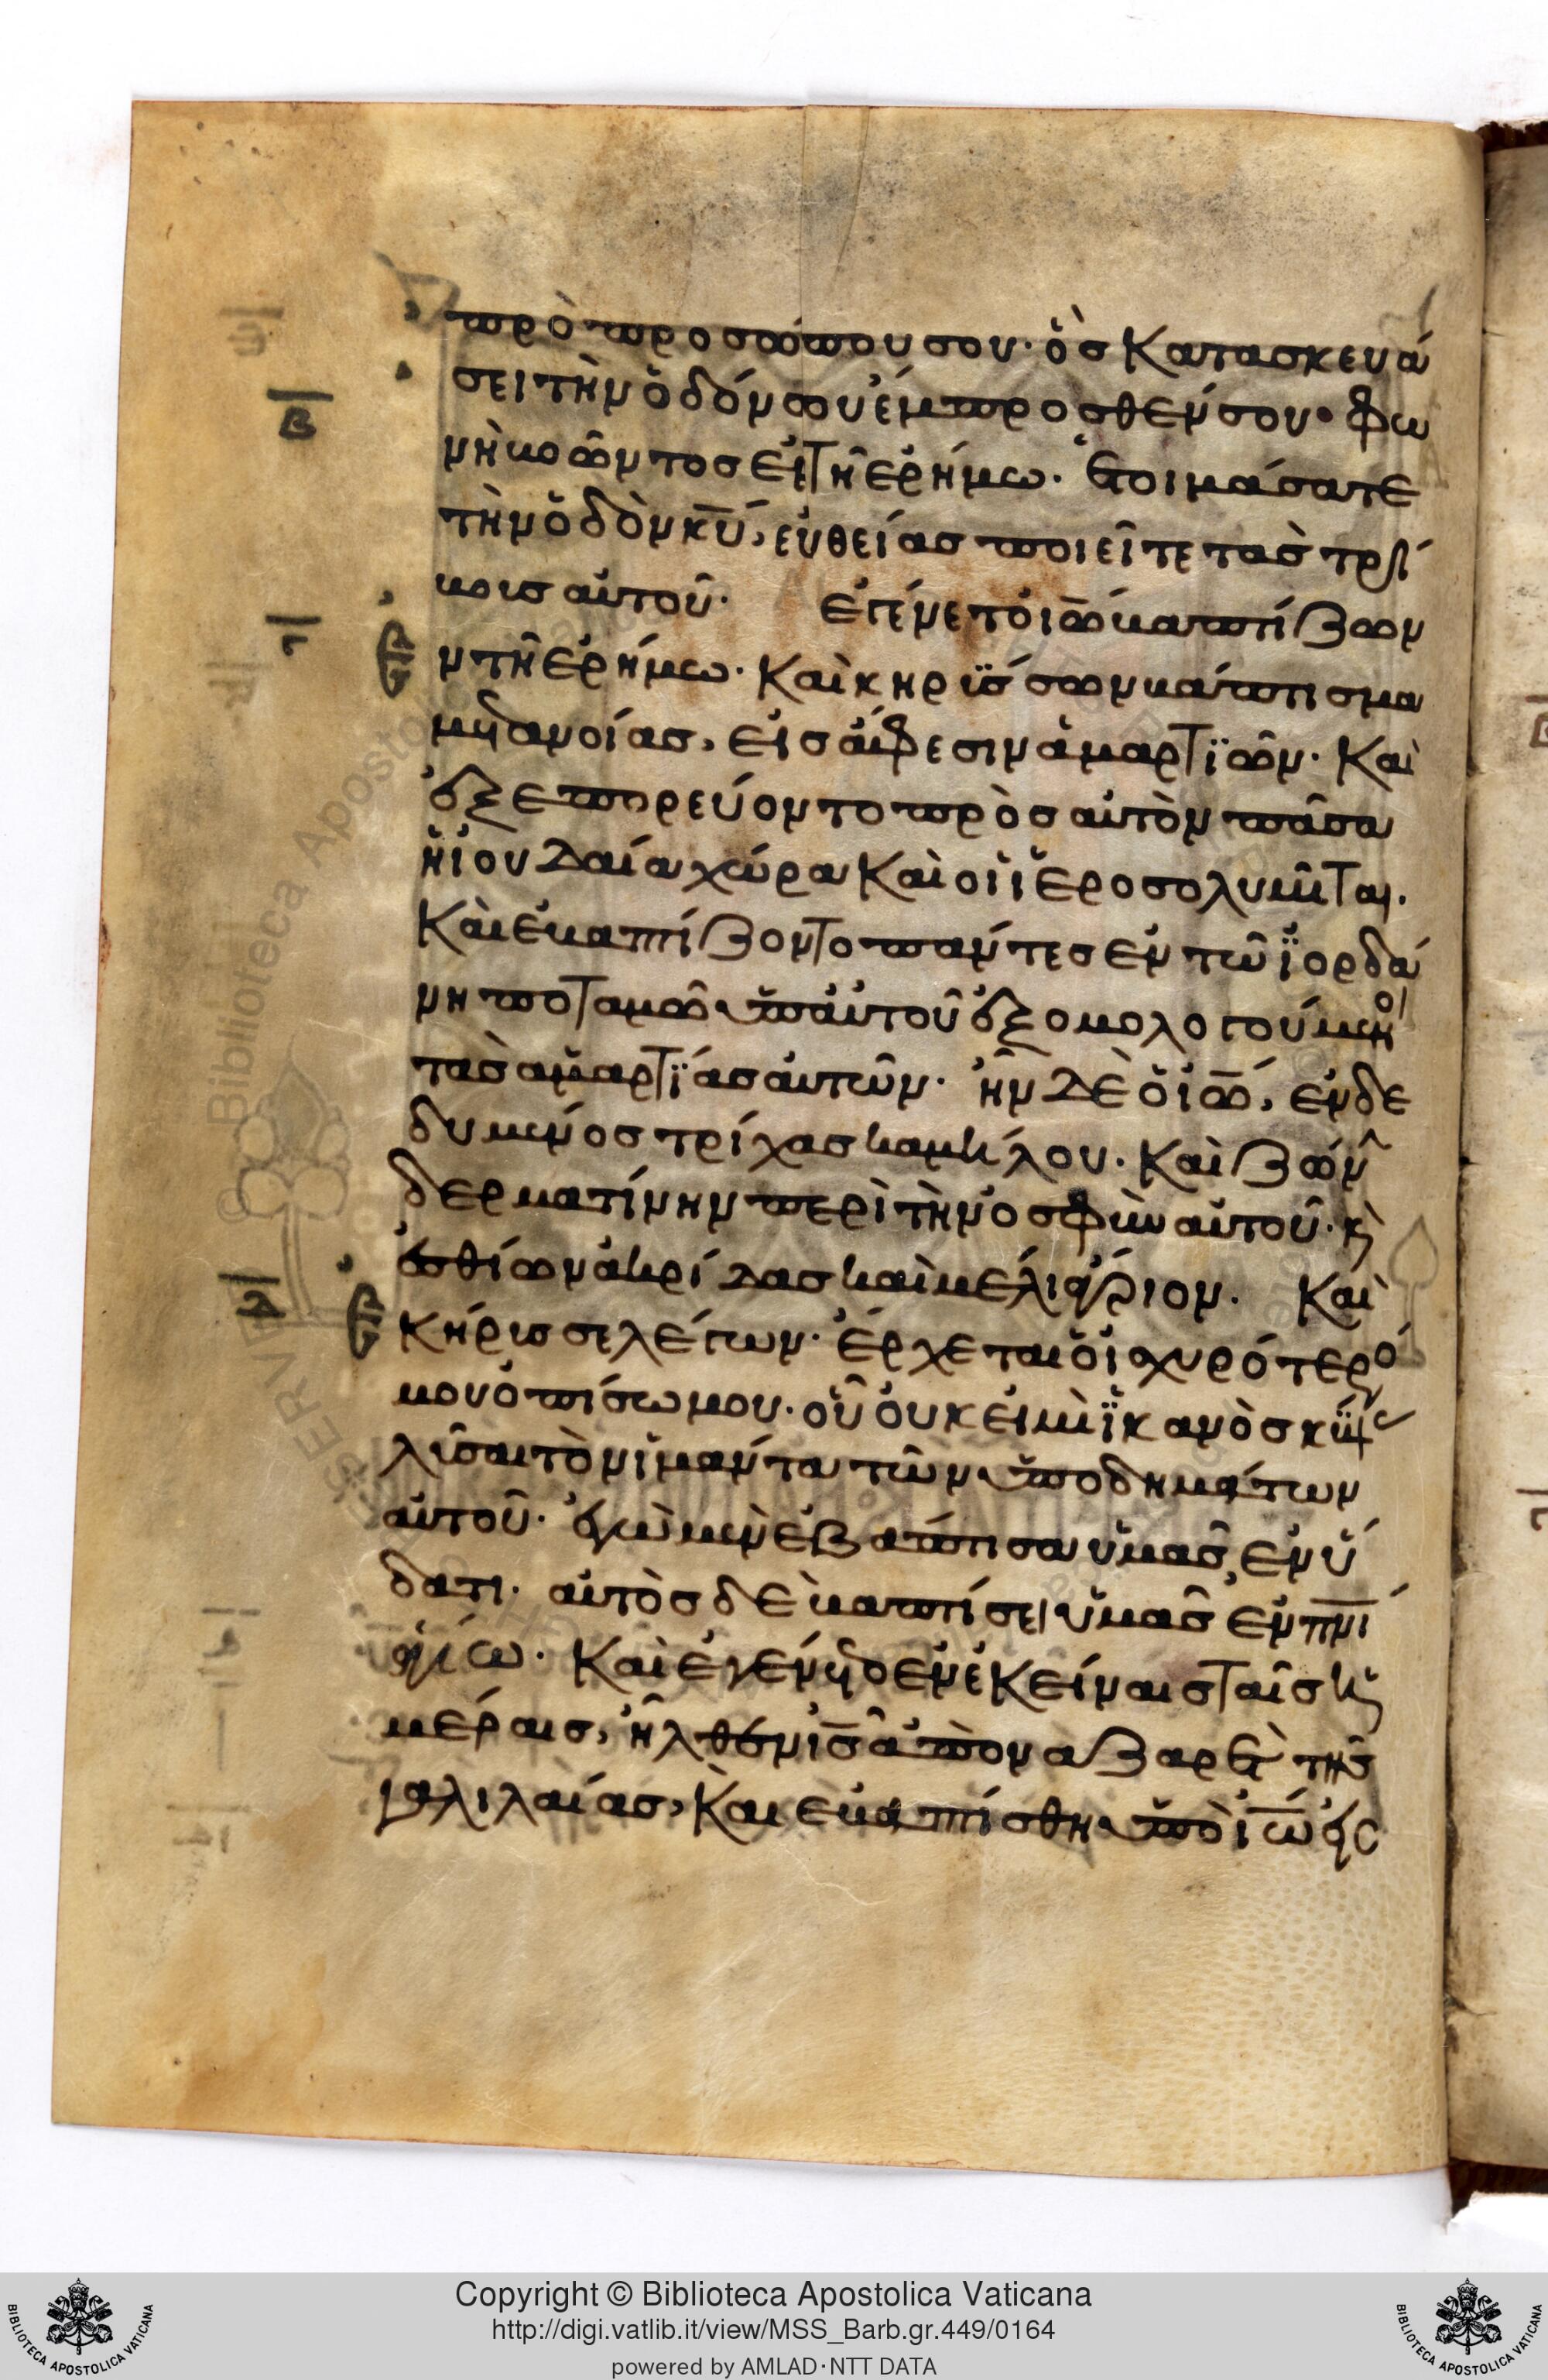 πρὸ προσώπου σου· ὃς κατασκευά
σει τὴν ὁδόν σου ἔμπροσθέν σου· φω
νὴ βοῶντος ἐν τῇ ἐρήμω· ἑτοιμάσατε
τὴν ὁδὸν κ̅υ̅, εὐθείας ποιεῖτε τὰς τρί
βους αὐτοῦ· ἐγένετο ἰω̅ βαπτίζων
ἐν τῇ ἐρήμω· καὶ κηρύσσων βάπτισμα
μετανοίας, εἰς ἄφεσιν ἁμαρτϊῶν· καὶ
ἐξεπορεύοντο πρὸς αὐτὸν πᾶσα
ἡ ἰουδαία χώρα καὶ οἱ ἱεροσολυμῖται.
καὶ ἐβαπτίζοντο πάντες ἐν τῶ ϊορδά
νη ποταμῶ ὑπ αὐτοῦ ἐξομολογούμενοι
τὰς ἁμαρτϊας αὐτῶν· ἦν δὲ ὁ ἰω̅, ἐνδε
δυμένος τρίχας καμήλου· καὶ ζώνην
δερματίνην περὶ τὴν ὀσφὺν αὐτοῦ· κὶ
ἐσθίων ἀκρίδας καὶ μέλι ἄγριον. καὶ
κήρισσε λέγων· ἔρχεται ὁ ἰσχυρότερός
μου ὀπίσω μου· οὗ οὐκ εἰμὶ ϊκανὸς κύψας
λῦσαι τὸν ἱμάντα τῶν ὑποδημάτων
αὐτοῦ· ἐγὼ μὲν ἐβάπτισα ὑμᾶς, ἐν ὕ
δατι· αὐτὸς δὲ βαπτίσει ὑμᾶς ἐν π̅ν̅ι̅
ἁγίω· καὶ ἐγένετο ἐν ἐκείναις ταῖς ἡ
μέραις, ἦλθεν ι̅ς̅ ἀπὸ ναζαρὲτ τῆς
γαλιλαίας, καὶ ἐβαπτίσθη ὑπὸ ἰω̅ εἰς
β̅
γ̅
δ̅
Copyright © Biblioteca Apostolica Vaticana
http://digi.vatlib.it/view/MSS_Barb.gr.449/0164
powered by AMLAD·NTT DATA
BIBLIOTECA APOSTOLICA VATICANA
BIBLIOTECA APOSTOLICA VATICANA